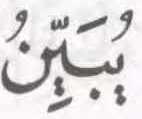 يُبَيِّنُ